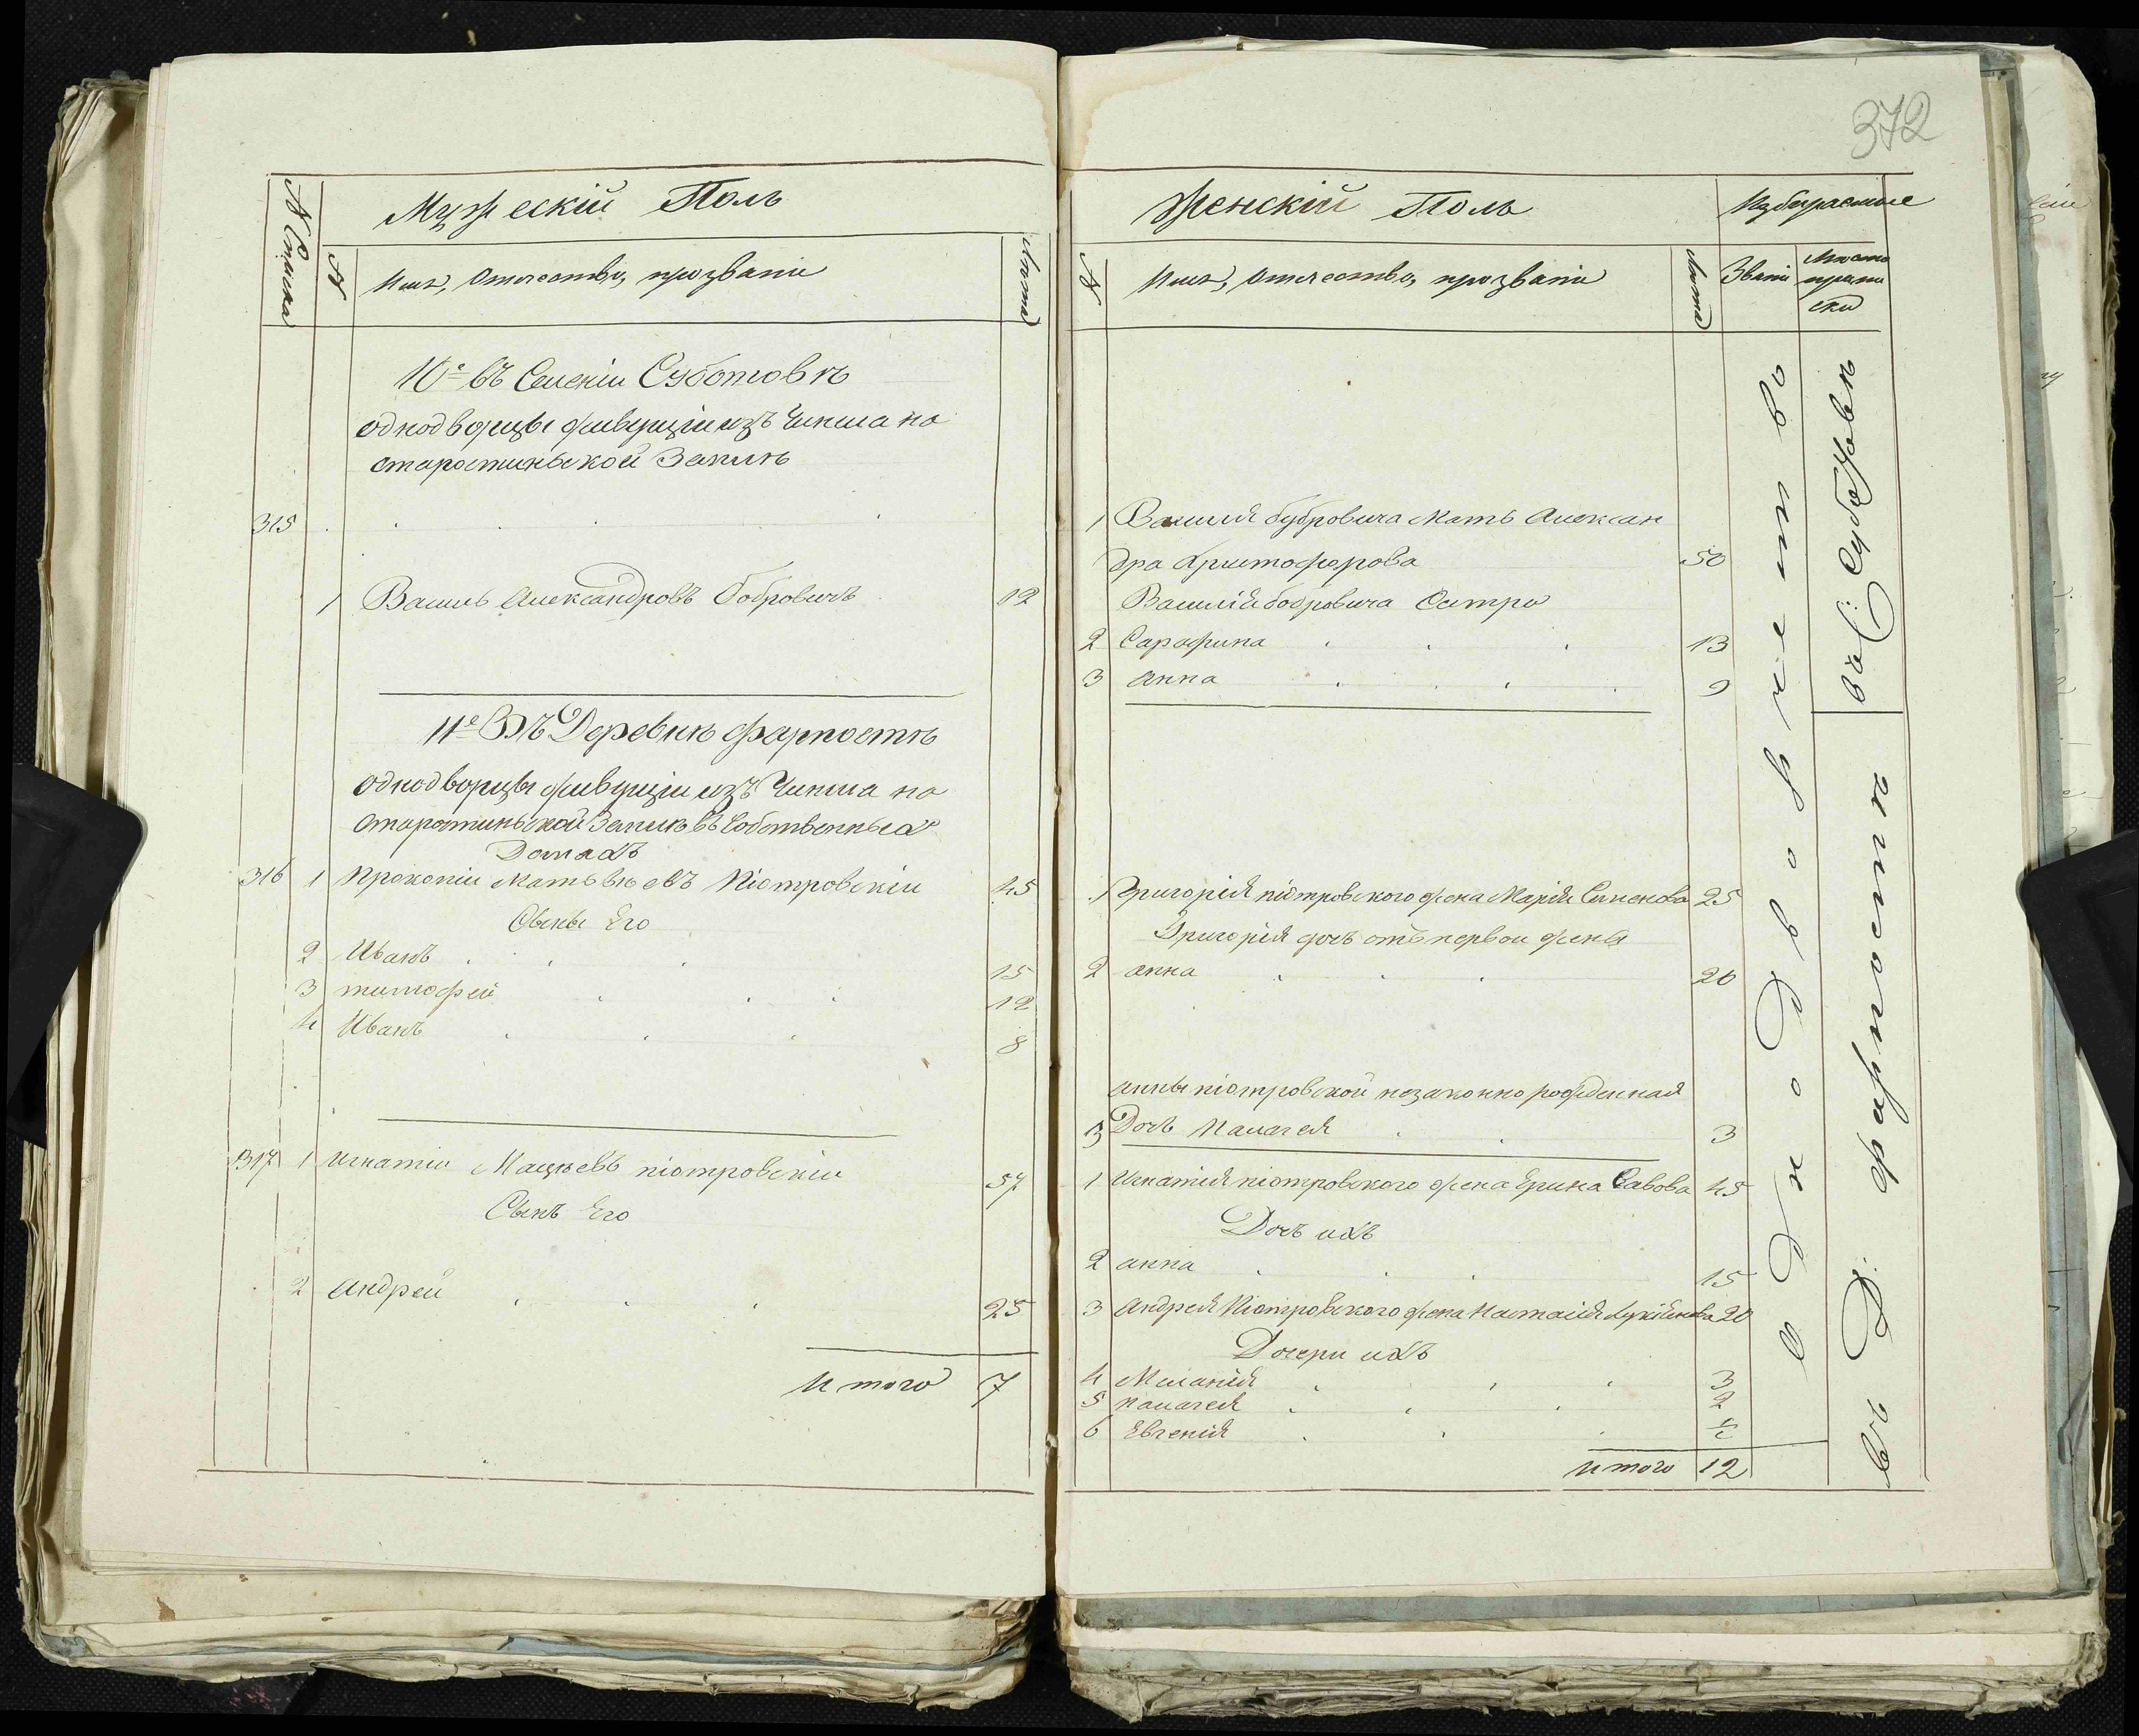 372
Мужескій Полъ
№ Списка
№
Имя, Отчество, прозваніе
Лѣта
10е въ Селеніи Суботовѣ
однодворцы живущіи изъ Чинша на
старостинской Землѣ
315
1 Василь Александровъ Бобровичъ 12
11е Въ Деревнѣ Фарпостѣ
однодворцы живущіи изъ Чинша на
старостинской Землѣ въ собственныхъ
Домахъ
316 1 Прокопіи Матвѣевъ Піотровскіи 45
Сыны Его
2 Иванъ 15
3 тимофей 12
4 Иванъ 8
317 1 Игнатіи Мацѣевъ піотровскіи 57
Сынъ Его
2 Андрей 25
Итого 7
Женскій Полъ
Избираемые
№
Имя, Отчество, прозваніе
Лѣта
Званіе
Мѣсто
припи
ски
1 Василія бубровича Мать Алексан
дра Христофорова 50
Василія бобровича Сестри
2 Сарафина 13
3 Анна 9
1 Григорія піотровского жена Марія Симснова 25
Григорія дочь отъ первои жены
2 анна 20
анны піотровской незаконно рожденная
3 Дочь Палагея 3
1 Игнатія піотровского жена Ерина Савова 45
Дочь ихъ
2 анна 15
3 Андрея Піотровского жена Настасія Лукіянова 20
Дочери ихъ
4 Миланія 3
5 палагея 2
6 Евгенія
Итого 12
въ Однодворчество
въ С: Суботовѣ
въ Д: фарпостѣ